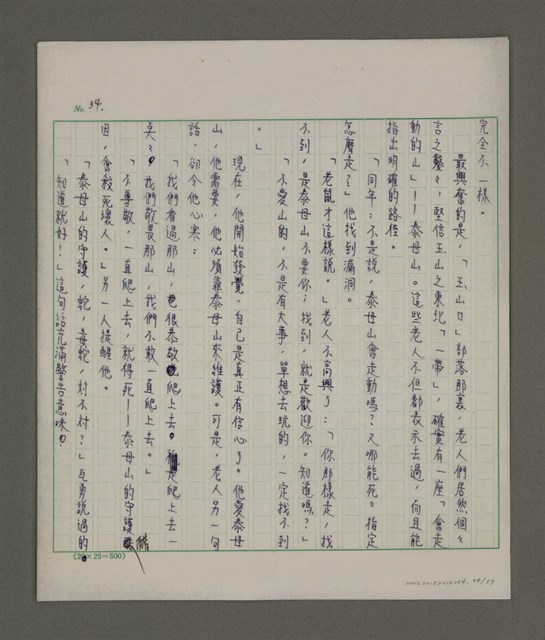 No. 34.
完全不一樣。
最興奮的是,「玉山口」部落那裏,老人們居然個々
言之鑿々,堅信玉山之東北「一帶」,確實有一座「會走
動的山」——泰母山。這些老人不但都表示去過,而且能
指出明確的路徑。
「同年:不是說,泰母山會走動嗎?又哪能死々指定
怎麼走?」他找到漏洞。
「老鼠才這樣說。」老人不高興了:「你那樣走,找
不到,是泰母山不要你;找到,就是歡迎你。知道嗎?」
「不愛山的,不是有大事,單想去玩的,一定找不到
。」
現在,他開始發覺,自己是真正有信心了。他愛泰母
山,他需要,他必須靠泰母山來維護。可是,老人另一句
話,卻令他心寒:
「我們看過那山,也很恭敬爬上去。就是爬上去一
點々。我們敬畏那山,我們不敢一直爬上去。」
「不尊敬,一直爬上去,就得死——泰母山的守護
因,會殺死壞人。」另一人提醒他。
「泰母山的守護,蛇,毒蛇,對不對?」瓦勇說過的
「知道就好!」這句話充滿警告意味。
(20×25=500)